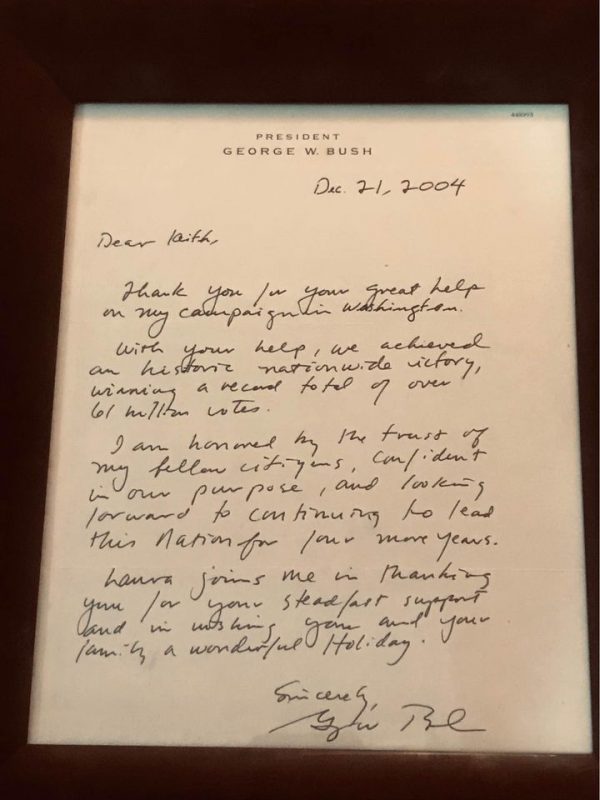 PRESIDENT
GEORGE W. BUSH
Dec. 21, 2004
Dear Keith,
Thank you for your great help
on my campaign in Washington.
With your help, we achieved
an historic nationwide victory,
winning a record total of over
61 million votes.
I am honored by the trust of
my fellow citizens, confident
in our purpose, and looking
forward to continuing to lead
this Nation for four more years.
Laura joins me in thanking
you for your steadfast support
and in wishing you and your
family a wonderful Holiday.
Sincerely,